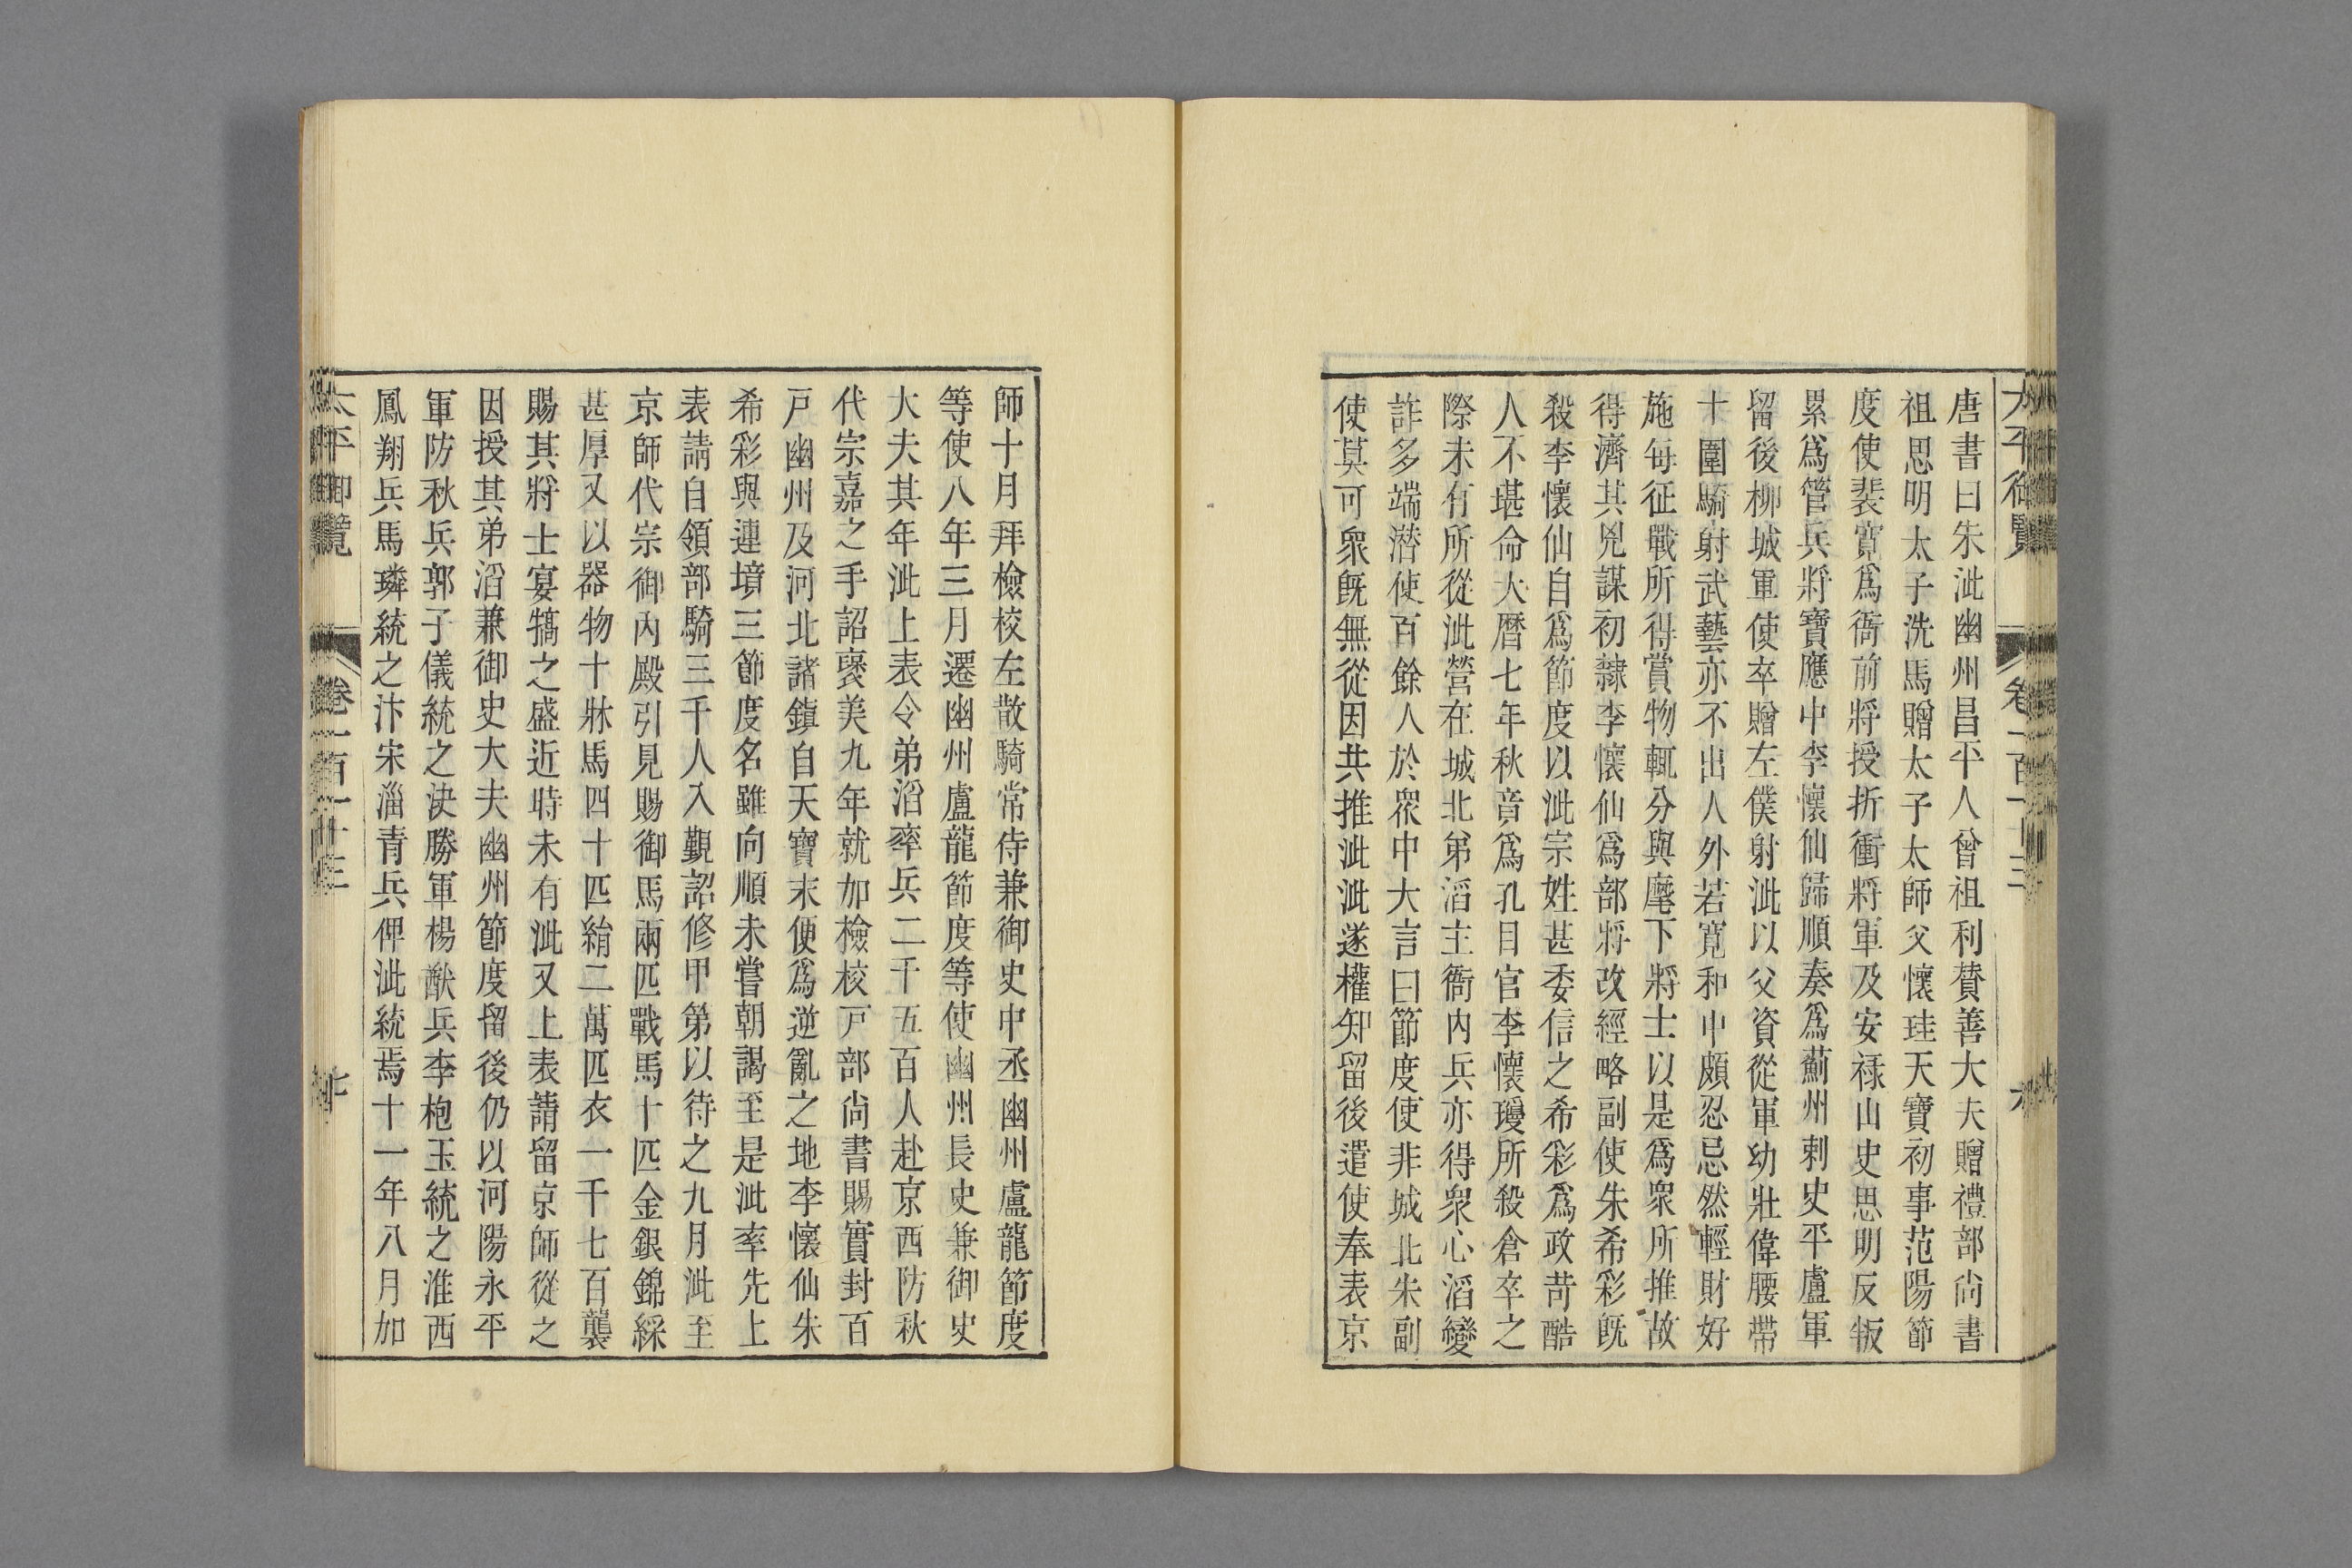 唐書曰朱泚幽州昌平人曾祖利賛善大夫贈禮部尚書
祖思明太子洗馬贈太子太師父懷珪天寶初事范陽節
度使裴寛爲衙前將授折衝將軍及安禄山史思明反叛
累爲管兵將寶應中李懷仙歸順奏爲薊州刺史平盧軍
留後柳城軍使卒贈左僕射泚以父資從軍幼壯偉腰帶
十圍騎射武藝亦不出人外若寛和中頗忍忌然輕財好
施每征戰所得賞物輒分與麾下將士以是爲衆所推故
得濟其兇謀初隸李懷仙爲部將改經略副使朱希彩旣
殺李懷仙自爲節度以泚宗姓甚委信之希彩爲政苛酷
人不堪命大暦七年秋音爲孔目官李懷瑗所殺倉卒之
際未有所從泚營在城北弟滔主衙内兵亦得衆心滔變
詐多端潜使百餘人於衆中大言曰節度使非城北朱副
使莫可衆旣無從因共推泚泚遂權知留後遣使奉表京
師十月拜檢校左散騎常侍兼御史中丞幽州盧龍節度
等使八年三月遷幽州盧龍節度等使幽州長史兼御史
大夫其年泚上表令弟滔率兵二千五百人赴京西防秋
代宗嘉之手詔褒美九年就加檢校戸部尚書賜實封百
戸幽州及河北諸鎮自天寶末便爲逆亂之地李懷仙朱
希彩與連墳三節度名雖向順未嘗朝謁至是泚率先上
表請自領部騎三千人入覲詔修甲第以待之九月泚至
京師代宗御内殿引見賜御馬兩匹戰馬十匹金銀錦綵
甚厚又以器物十牀馬四十匹絹二萬匹衣一千七百襲
賜其將士宴犒之盛近時未有泚又上表請留京師從之
因授其弟滔兼御史大夫幽州節度留後仍以河陽永平
軍防秋兵郭子儀統之決勝軍楊猷兵李枹玉統之淮西
鳳翔兵馬璘統之汴宋淄青兵俾泚統焉十一年八月加
太平御覽 卷一百一十三